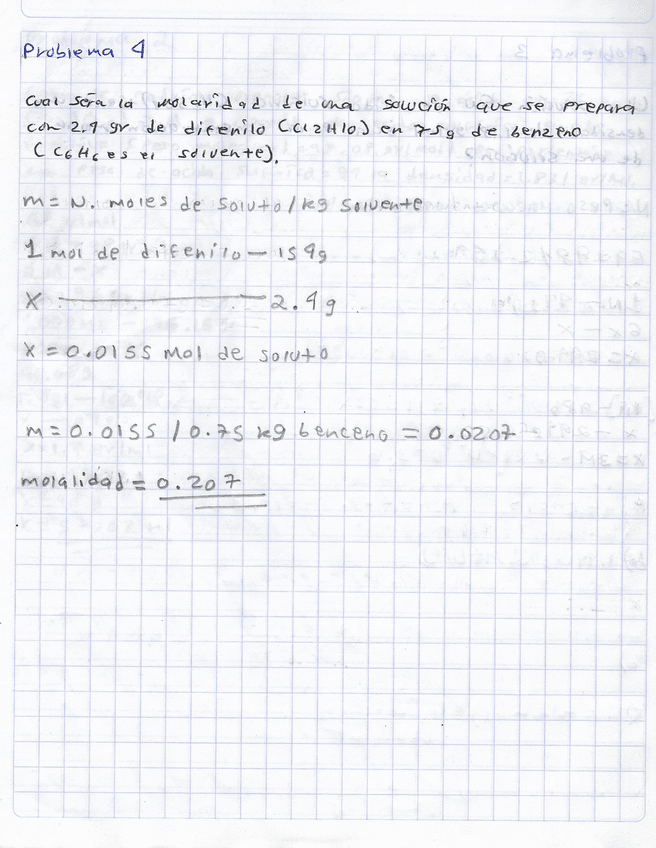 Problema 4
Cual sera la molaridad de una solución que se prepara
con 2.4 gr de difenilo (C12H10) en 75g de benzeno
(C6H6 es el solvente).
m= N. moles de soluto/kg solvente
1 mol de difenilo — 154g
X ——— 2.4 g
X = 0.0155 mol de soluto
m= 0.0155 / 0.75 kg benceno = 0.0207
molalidad = 0.207